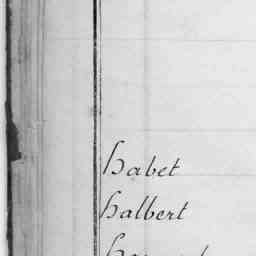 Habet
Halbert